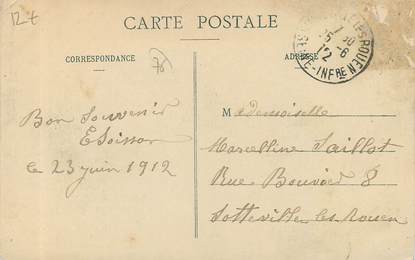 R 4
CARTE POSTALE
CORRESPONDANCE
ADRESSE
76
ROUEN
SNE-INFRE
Bon Souvenir
E Soisson
le 23 juin 1912
Mademoiselle
Marcelline Saillot
Rue Bouvier 8
Sotteville les Rouen